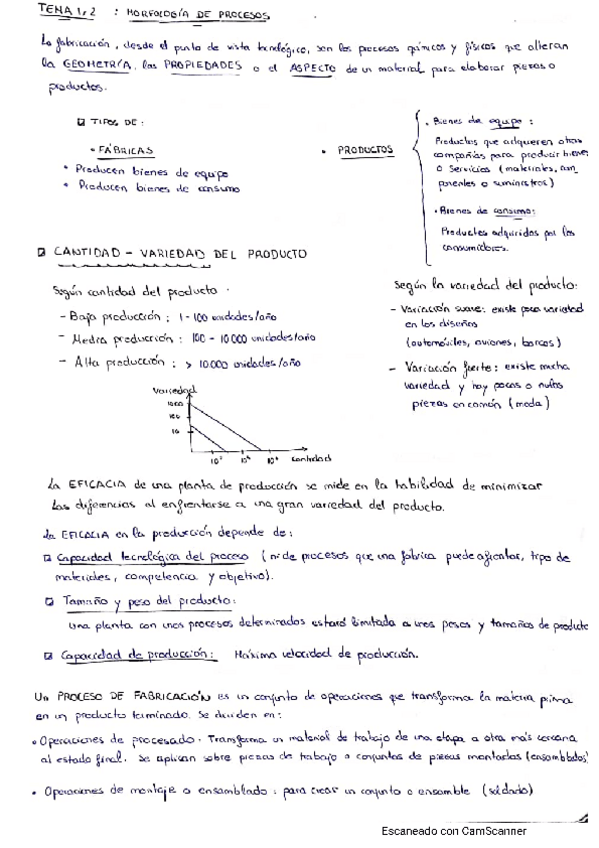 TEMA 1 y 2 : MORFOLOGÍA DE PROCESOS
La fabricación, desde el punto de vista tecnológico, son los procesos químicos y físicos que alteran
la GEOMETRÍA, las PROPIEDADES o el ASPECTO de un material para elaborar piezas o
productos.
TIPOS DE:
• FÁBRICAS
• Producen bienes de equipo
• Producen bienes de consumo
• PRODUCTOS
• Bienes de equipo :
Productos que adquieren otras
compañías para producir bienes
o servicios (materiales, com
ponentes o suministros)
• Bienes de consumo:
Productos adquiridos por los
consumidores.
CANTIDAD - VARIEDAD DEL PRODUCTO
Según cantidad del producto
- Baja producción : 1-100 unidades/año
- Media producción : 100 - 10000 unidades/año
- Alta producción : > 10000 unidades/año
Según la variedad del producto:
- Variación suave: existe poca variedad
en los diseños
(automóviles, aviones, barcos)
- Variación fuerte: existe mucha
variedad y hay pocas o nulas
piezas en común (moda)
Variedad
1000
100
10
10² 10⁴ Cantidad
La EFICACIA de una planta de producción se mide en la habilidad de minimizar
las diferencias al enfrentarse a una gran variedad del producto.
La EFICACIA en la producción depende de:
Capacidad tecnológica del proceso (nº de procesos que una fábrica puede afrontar, tipo de
materiales, competencia y objetivo).
Tamaño y peso del producto:
una planta con unos procesos determinados estará limitada a unos pesos y tamaños de producto
Capacidad de producción: Máxima velocidad de producción.
Un PROCESO DE FABRICACIÓN es un conjunto de operaciones que transforma la materia prima
en un producto terminado. Se dividen en:
• Operaciones de procesado. Transforma un material de trabajo de una etapa a otra más cercana
al estado final. Se aplican sobre piezas de trabajo o conjuntos de piezas montadas (ensamblados)
• Operaciones de montaje o ensamblado : para crear un conjunto o ensamble (soldado)
Escaneado con CamScanner